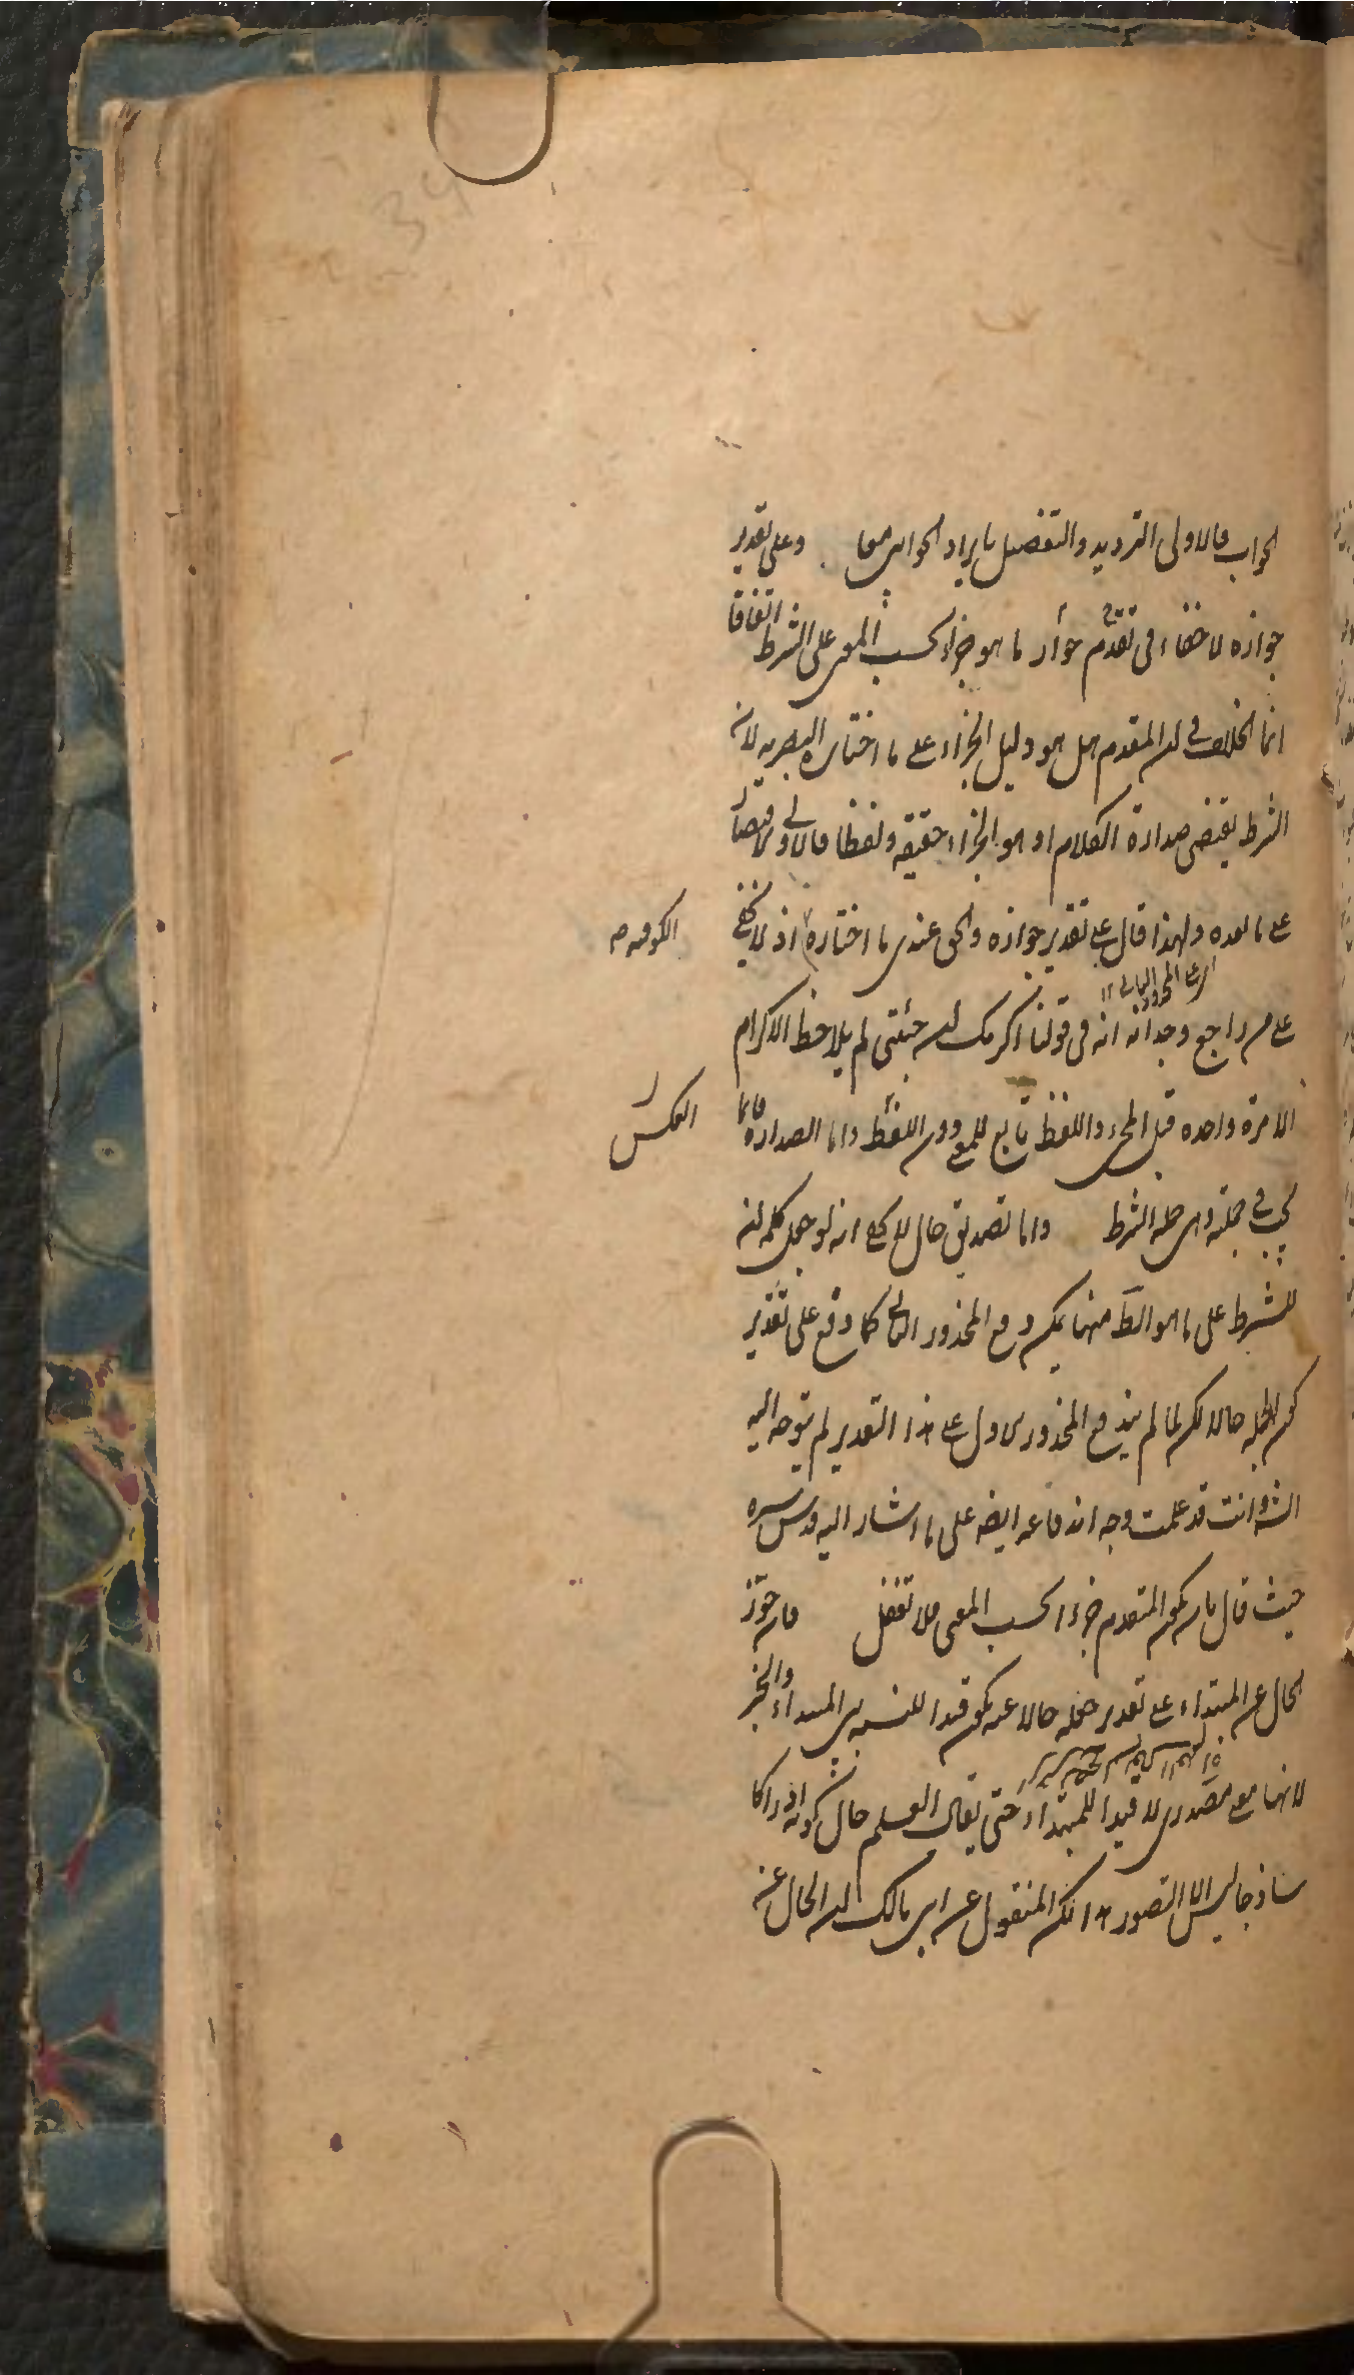 الجواب فالاولى الترديد والتفصيل بايراد الجوابين معا وعلى تقدير
جوازه لا خفاء فى تقدم جواز ما هو جزاء بحسب المعنى على الشرط اتفاقا
انما الخلاف فى ان المقدم هل هو دليل الجزاء على ما اختاره البصريه لان
الشرط يقتضى صدارة الكلام او هو الجزاء حقيقة ولفظا فالاولى
على ما بعده ولهذا قال على تقدير جوازه والحق عندى ما اختاره اذ لا يخفى
الكوفيه صح
على من راجع وجدانه انه فى قولنا اكرمك ان جئتنى لم يلاحظ الاكرام
الا مرة واحده قبل المجىء واللفظ تابع للمعنى دون اللفظ واما الصدارة فانما
العكس
يجب فى جملته وهى جملة الشرط واما تصديق حال انه لو جعل كلمة ان
للشرط على ما هو الظ منها يمكن دفع المحذور الثانى كما وقع على تقدير
كون الجملة حالا لكن لما لم يندفع المحذور الاول على هذا التقدير لم يتوجه اليه
الش وانت قد علمت وجه اندفاعه ايضا على ما اشار اليه قدس سره
حيث قال بان يكون المتقدم جزءا بحسب المعنى فلا تغفل فان جوز
الحال عن المبتداء على تقدير جعله حالا عنه يكون قيدا للنسبه بين المبتداء والخبر
لانها معنى مصدرى لا قيدا للمبتداء حتى يقال العلم حال كونه ادراكا
ساذجا ليس الا التصور هذا لكن المنقول عن ابن مالك ان الحال عنه